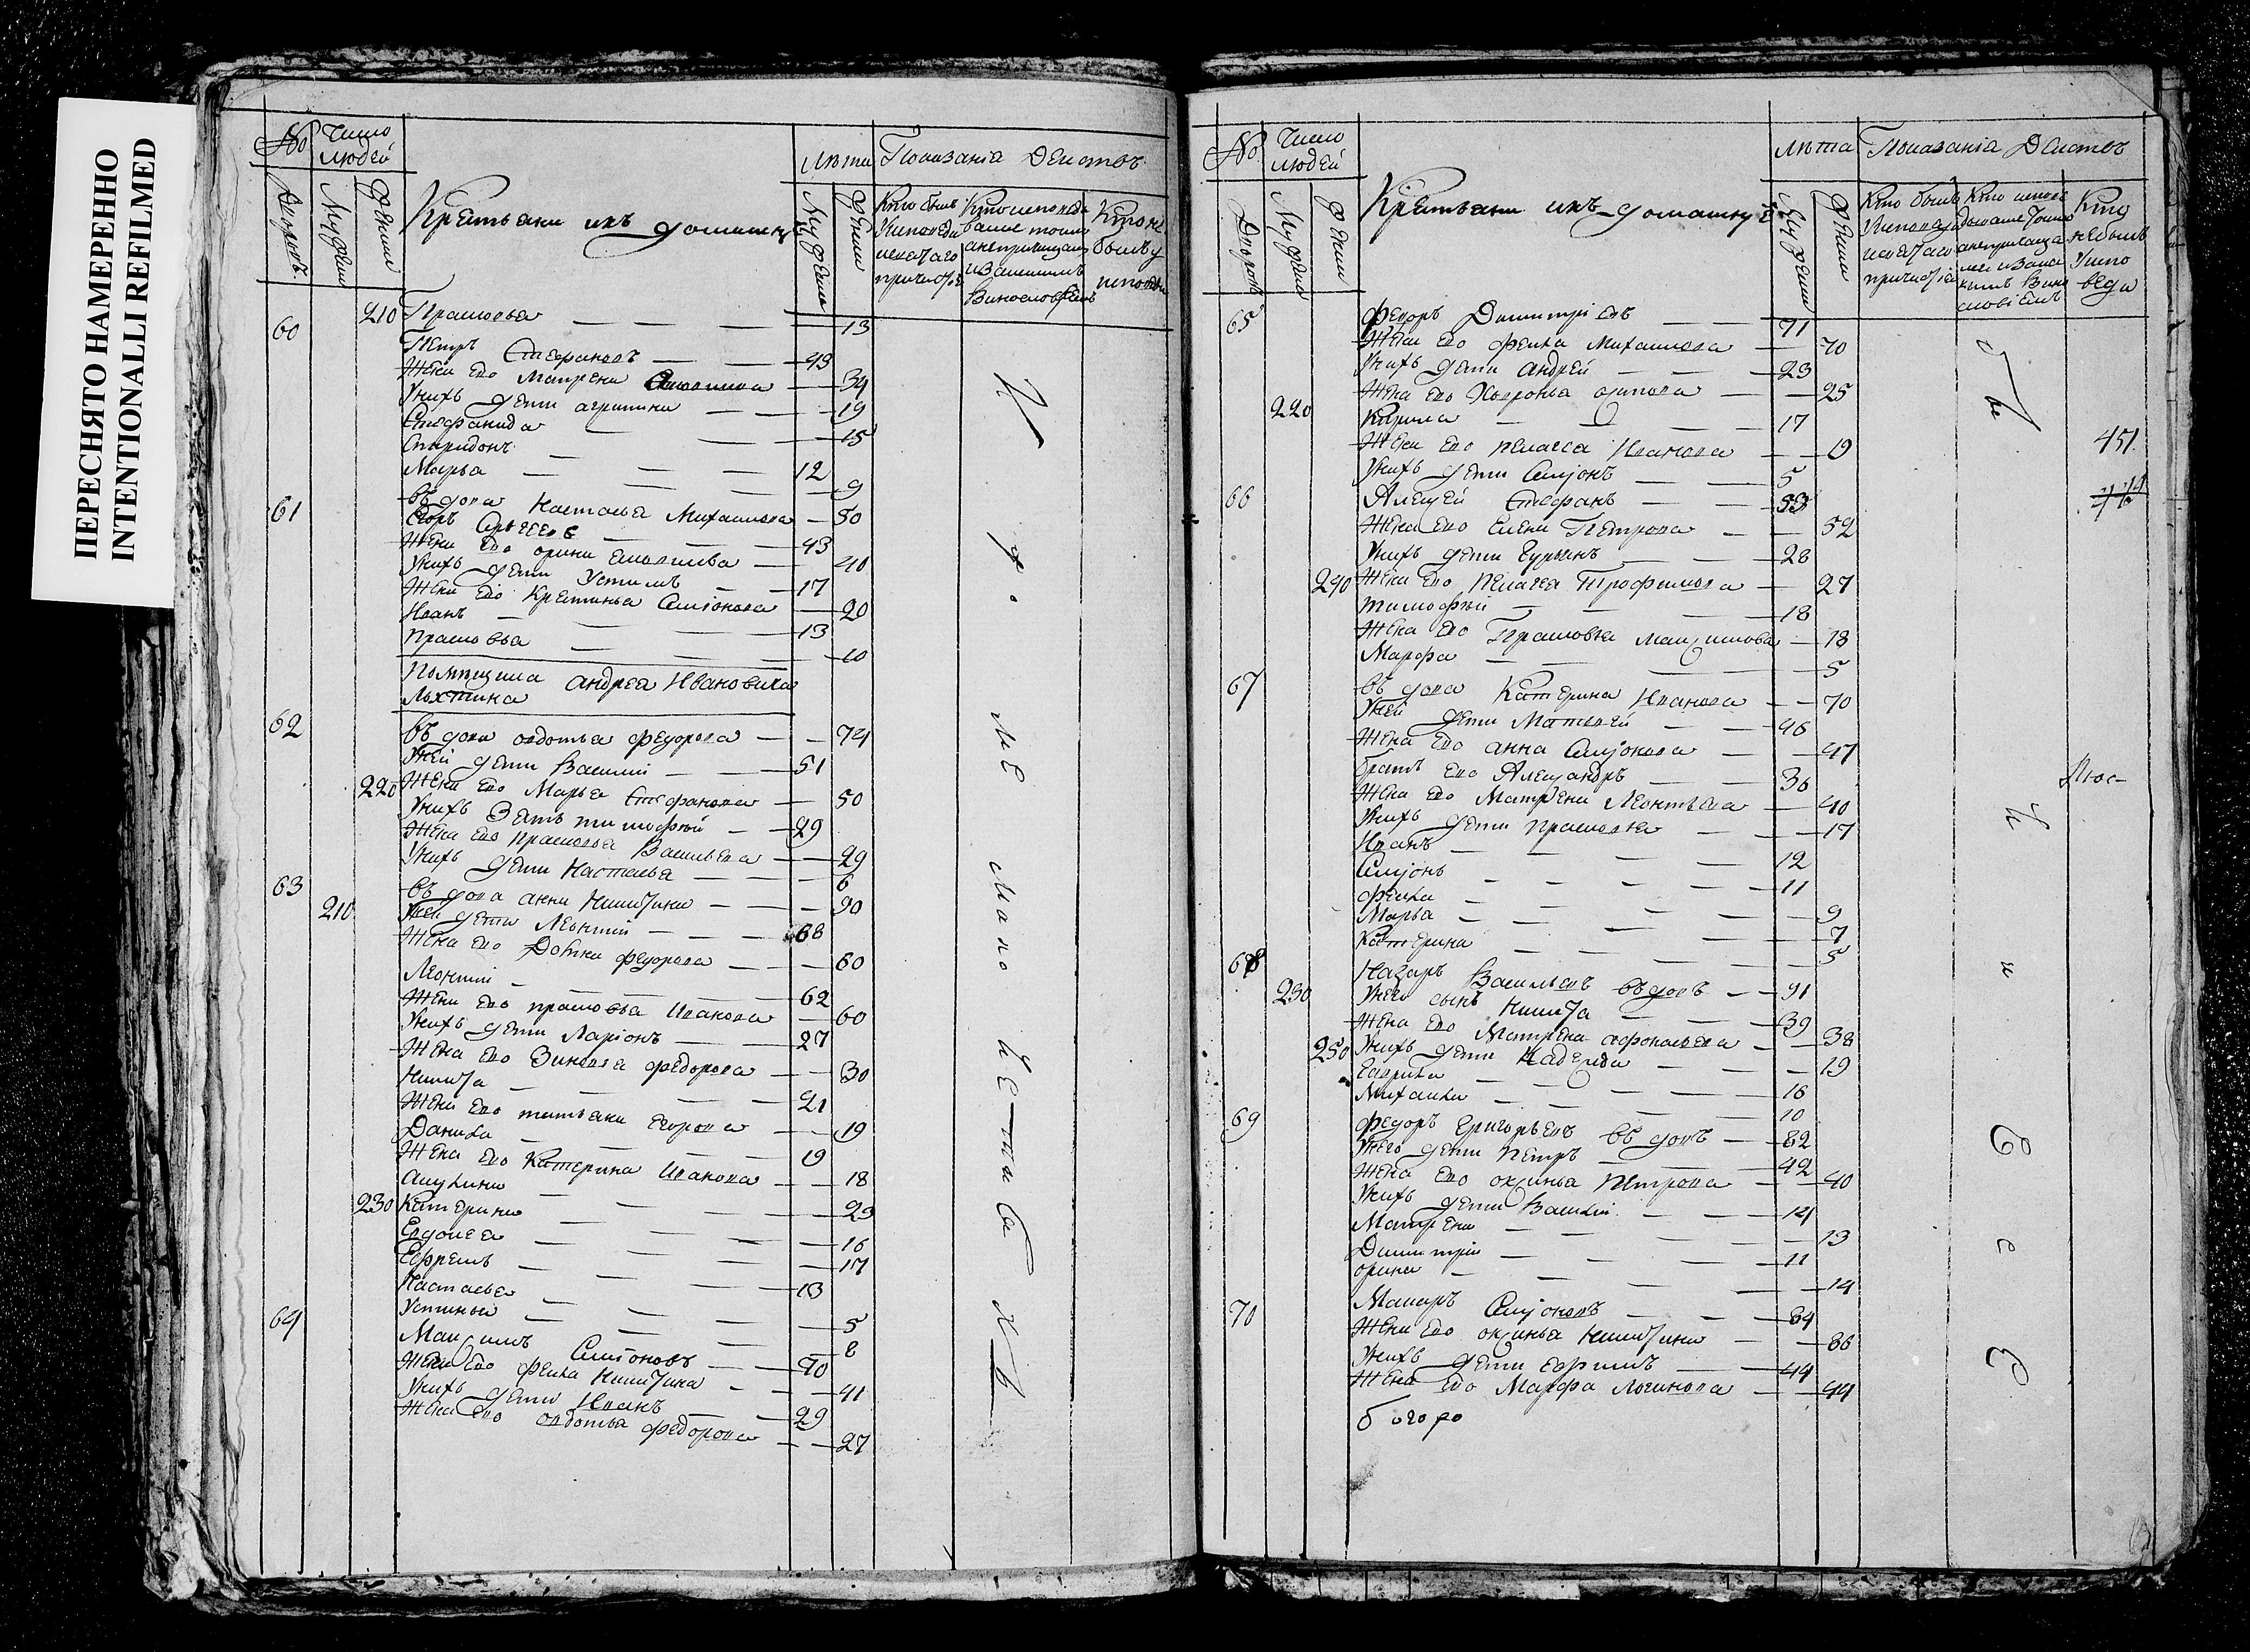 ПЕРЕСНЯТО НАМЕРЕННО
INTENTIONALLI REFILMED
№ Число людей Лѣта Показанія Действъ
Дворовъ Муж Женска Крестьяни ихъ домашни
210 Прасковья 13
60 Петръ Стефановъ 43
Жена его Матрена 39
Унихъ дети агрипина 19
Стефанида 15
Спиридонъ 12
Марья 9
вдова Настасья Михаилова 50
61 Егоръ 43
Жена его орина 40
Унихъ дети Устимъ 17
Жена его Крестинья Симіонова 20
Иванъ 13
Прасковья 10
Помещика андрея Ивановича
62 вдова овдотья федорова 74
Уней дети Василий 51
220 Жена его Марья Стефанова 50
Унихъ Зять тимофѣй 29
Жена его прасковья Васильева 29
Унихъ дети Настасья 6
63 вдова анна Никитина 90
210 Уней дети Леонтий 68
Жена его федорова 60
Леонтий 62
Жена его прасковья Иванова 60
Унихъ дети Ларіонъ 27
Жена его Зиновья федорова 30
Никита 21
Жена его татьяна Егорова 19
Данила 19
Жена его Катерина Иванова 18
Акулина 23
230 Катерина 16
Евдокея 17
Ефремъ 13
Настасья 5
Устинья 8
64 Максимъ Симіоновъ 40
Жена его фекла Никитина 41
Унихъ дети Иванъ 29
Жена его овдотья федорова 27
№ Число людей Лѣта Показанія Действъ
Дворовъ Крестьяни ихъ домашни
65 федоръ Димитріевъ 71
Жена его фекла Михаилова 70
Унихъ дети андрей 23
Жена его Хавронья осипова 25
220 Кирила 17
Жена его пелагея Иванова 19
451
Унихъ дети Симіонъ 5
66 Алексей Стефанъ 53
Жена его Елена Петрова 52
Унихъ дети Гурьянъ 28
240 Жена его Пелагея Трофимова 27
тимофѣй 18
Жена его Прасковья максимова 18
Марфа 5
67 вдова Катерина Иванова 70
Уней дети Матвей 46
Жена его анна Симіонова 47
братъ его Александръ 36
Жена его Матрена Леонтьева 40
Унихъ дети прасковья 17
Иванъ 12
Симіонъ 11
фекла 9
Марья 7
Катерина 5
68 Назаръ Васильевъ вдовъ 91
230 Унего сынъ Никита 39
Жена его Матрена афонасьева 38
250 Унихъ дети Надежда 19
Гаврила 16
Михаила 10
69 федоръ Григорьевъ вдовъ 82
Унего дети Петръ 42
Жена его оксинья Петрова 40
Унихъ дети Василій 14
Матрена 13
Димитрій 11
орина 14
70 Макаръ Симіоновъ 84
Жена его оксинья Никитина 86
Унихъ дети Ефимъ 44
Жена его Марфа Логинова 44
богоро